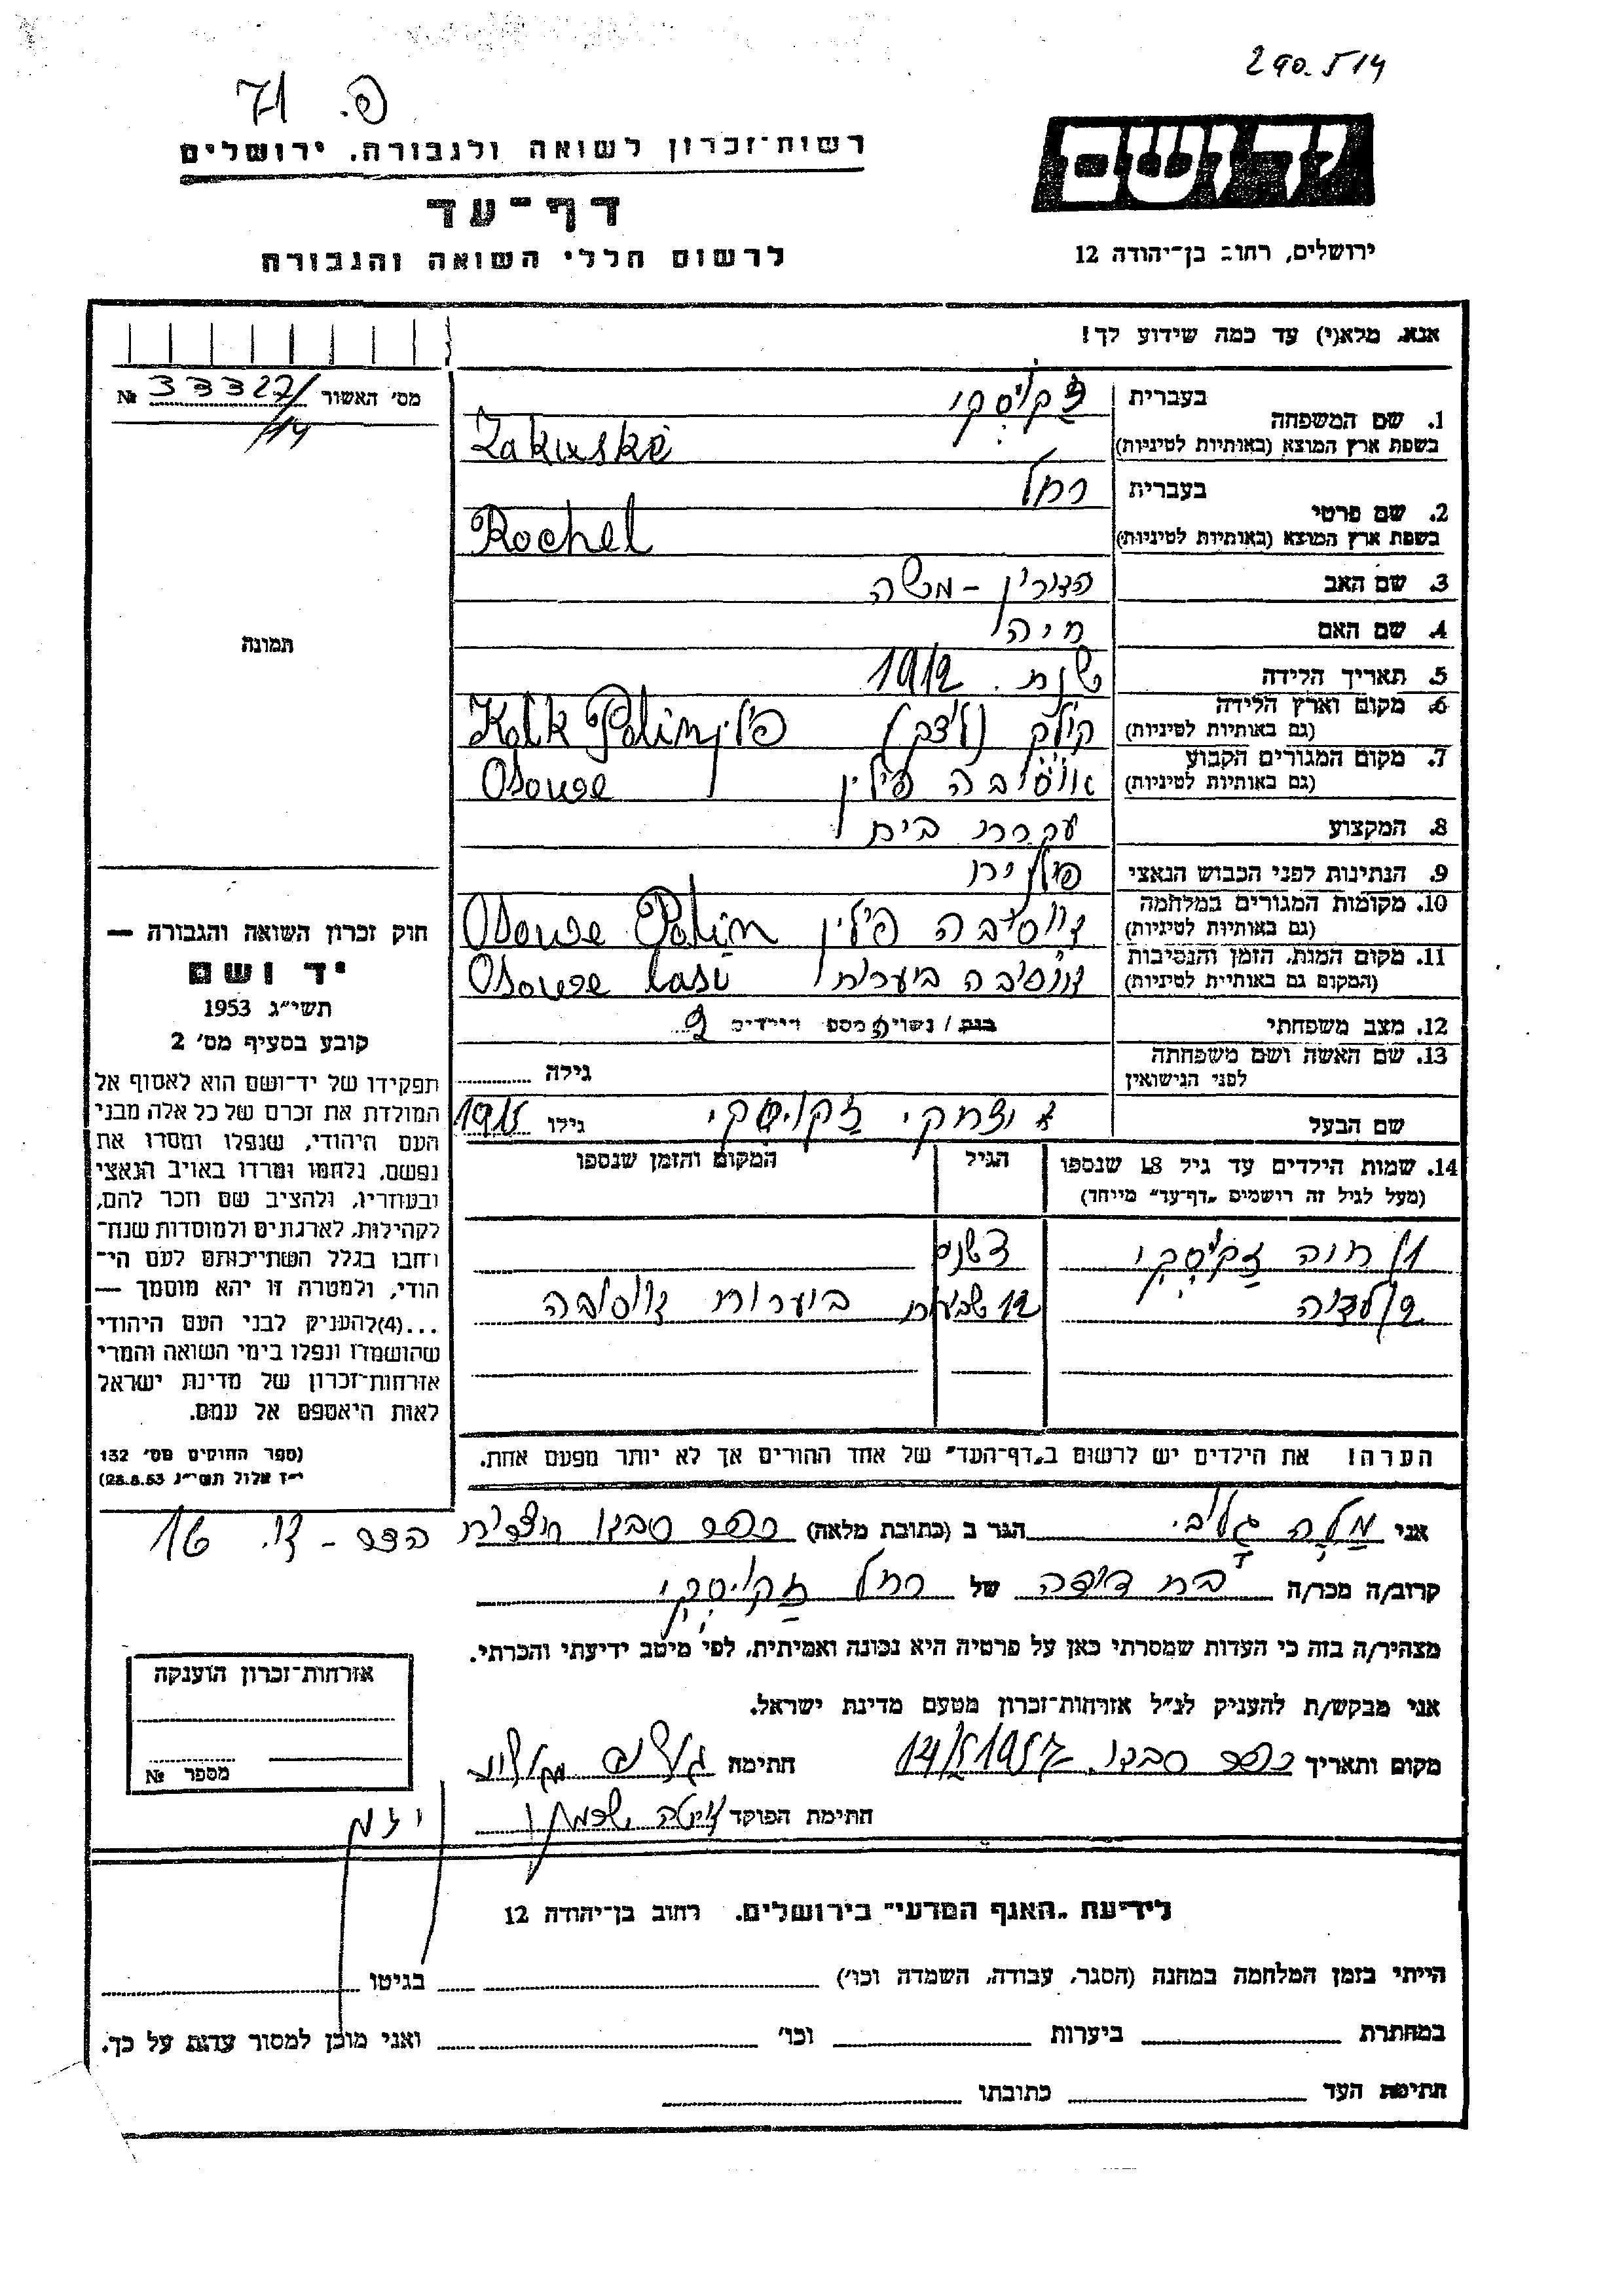 290.514
פ. 71
יד ושם
רשות־זכרון לשואה ולגבורה, ירושלים
דף־עד
לרשום חללי השואה והגבורה
ירושלים, רחוב בן־יהודה 12
אנא, מלא(י) עד כמה שידוע לך!
מס' האשור 33327/14 №
1. שם המשפחה
בעברית זַקוּיסְקִי
בשפת ארץ המוצא (באותיות לטיניות) Zakuiski
2. שם פרטי
בעברית רחל
בשפת ארץ המוצא (באותיות לטיניות) Rochel
3. שם האב - משה
4. שם האם חיה
5. תאריך הלידה שנת 1912
6. מקום וארץ הלידה
(גם באותיות לטיניות) קולק פולין Kolk Polin
7. מקום המגורים הקבוע
(גם באותיות לטיניות) פולין Osowe
8. המקצוע עקרת בית
9. הנתינות לפני הכבוש הנאצי פולנית
10. מקומות המגורים במלחמה
(גם באותיות לטיניות) אוסובה פולין Osowe Polin
11. מקום המות, הזמן והנסיבות
(המקום גם באותיות לטיניות) אוסובה ביערות Osowe lasi
12. מצב משפחתי רווק / נשוי מספר הילדים 2
13. שם האשה ושם משפחתה
לפני הנישואין גילה
שם הבעל זקויסקי גילו 1915
14. שמות הילדים עד גיל 18 שנספו
(מעל לגיל זה רושמים "דף־עד" מיוחד)
הגיל
המקום והזמן שנספו
1) חוה זַקוּיסְקִי שנים
2) 12 שבועות ביערות אוסובה
הערה! את הילדים יש לרשום ב"דף־העד" של אחד ההורים אך לא יותר מפעם אחת.
תמונה
חוק זכרון השואה והגבורה —
יד ושם
תשי"ג 1953
קובע בסעיף מס' 2
תפקידו של יד־ושם הוא לאסוף אל
המולדת את זכרם של כל אלה מבני
העם היהודי, שנפלו ומסרו את
נפשם, נלחמו ומרדו באויב הנאצי
ובעוזריו, ולהציב שם וזכר להם,
לקהילות, לארגונים ולמוסדות שנח־
רבו בגלל השתייכותם לעם הי־
הודי, ולמטרה זו יהא מוסמך —
...(4)להעניק לבני העם היהודי
שהושמדו ונפלו בימי השואה והמרי
אזרחות־זכרון של מדינת ישראל
לאות היאספם אל עמם.
(ספר החוקים מס' 132
י"ז אלול תשי"ג 28.8.53)
אני הגר ב (כתובת מלאה) כפר סבא 16
קרוב/ה מכר/ה בת דודה של רחל זַקוּיסְקִי
מצהיר/ה בזה כי העדות שמסרתי כאן על פרטיה היא נכונה ואמיתית, לפי מיטב ידיעתי והכרתי.
אני מבקש/ת להעניק לנ"ל אזרחות־זכרון מטעם מדינת ישראל.
מקום ותאריך כפר סבא 14/5 1957 חתימה
חתימת הפוקד
אזרחות־זכרון הוענקה
מספר №
לידיעת "האגף המדעי" בירושלים. רחוב בן־יהודה 12
הייתי בזמן המלחמה במחנה (הסגר, עבודה, השמדה וכו') בגיטו
במחתרת ביערות וכו' ואני מוכן למסור עדות על כך.
חתימת העד כתובתו